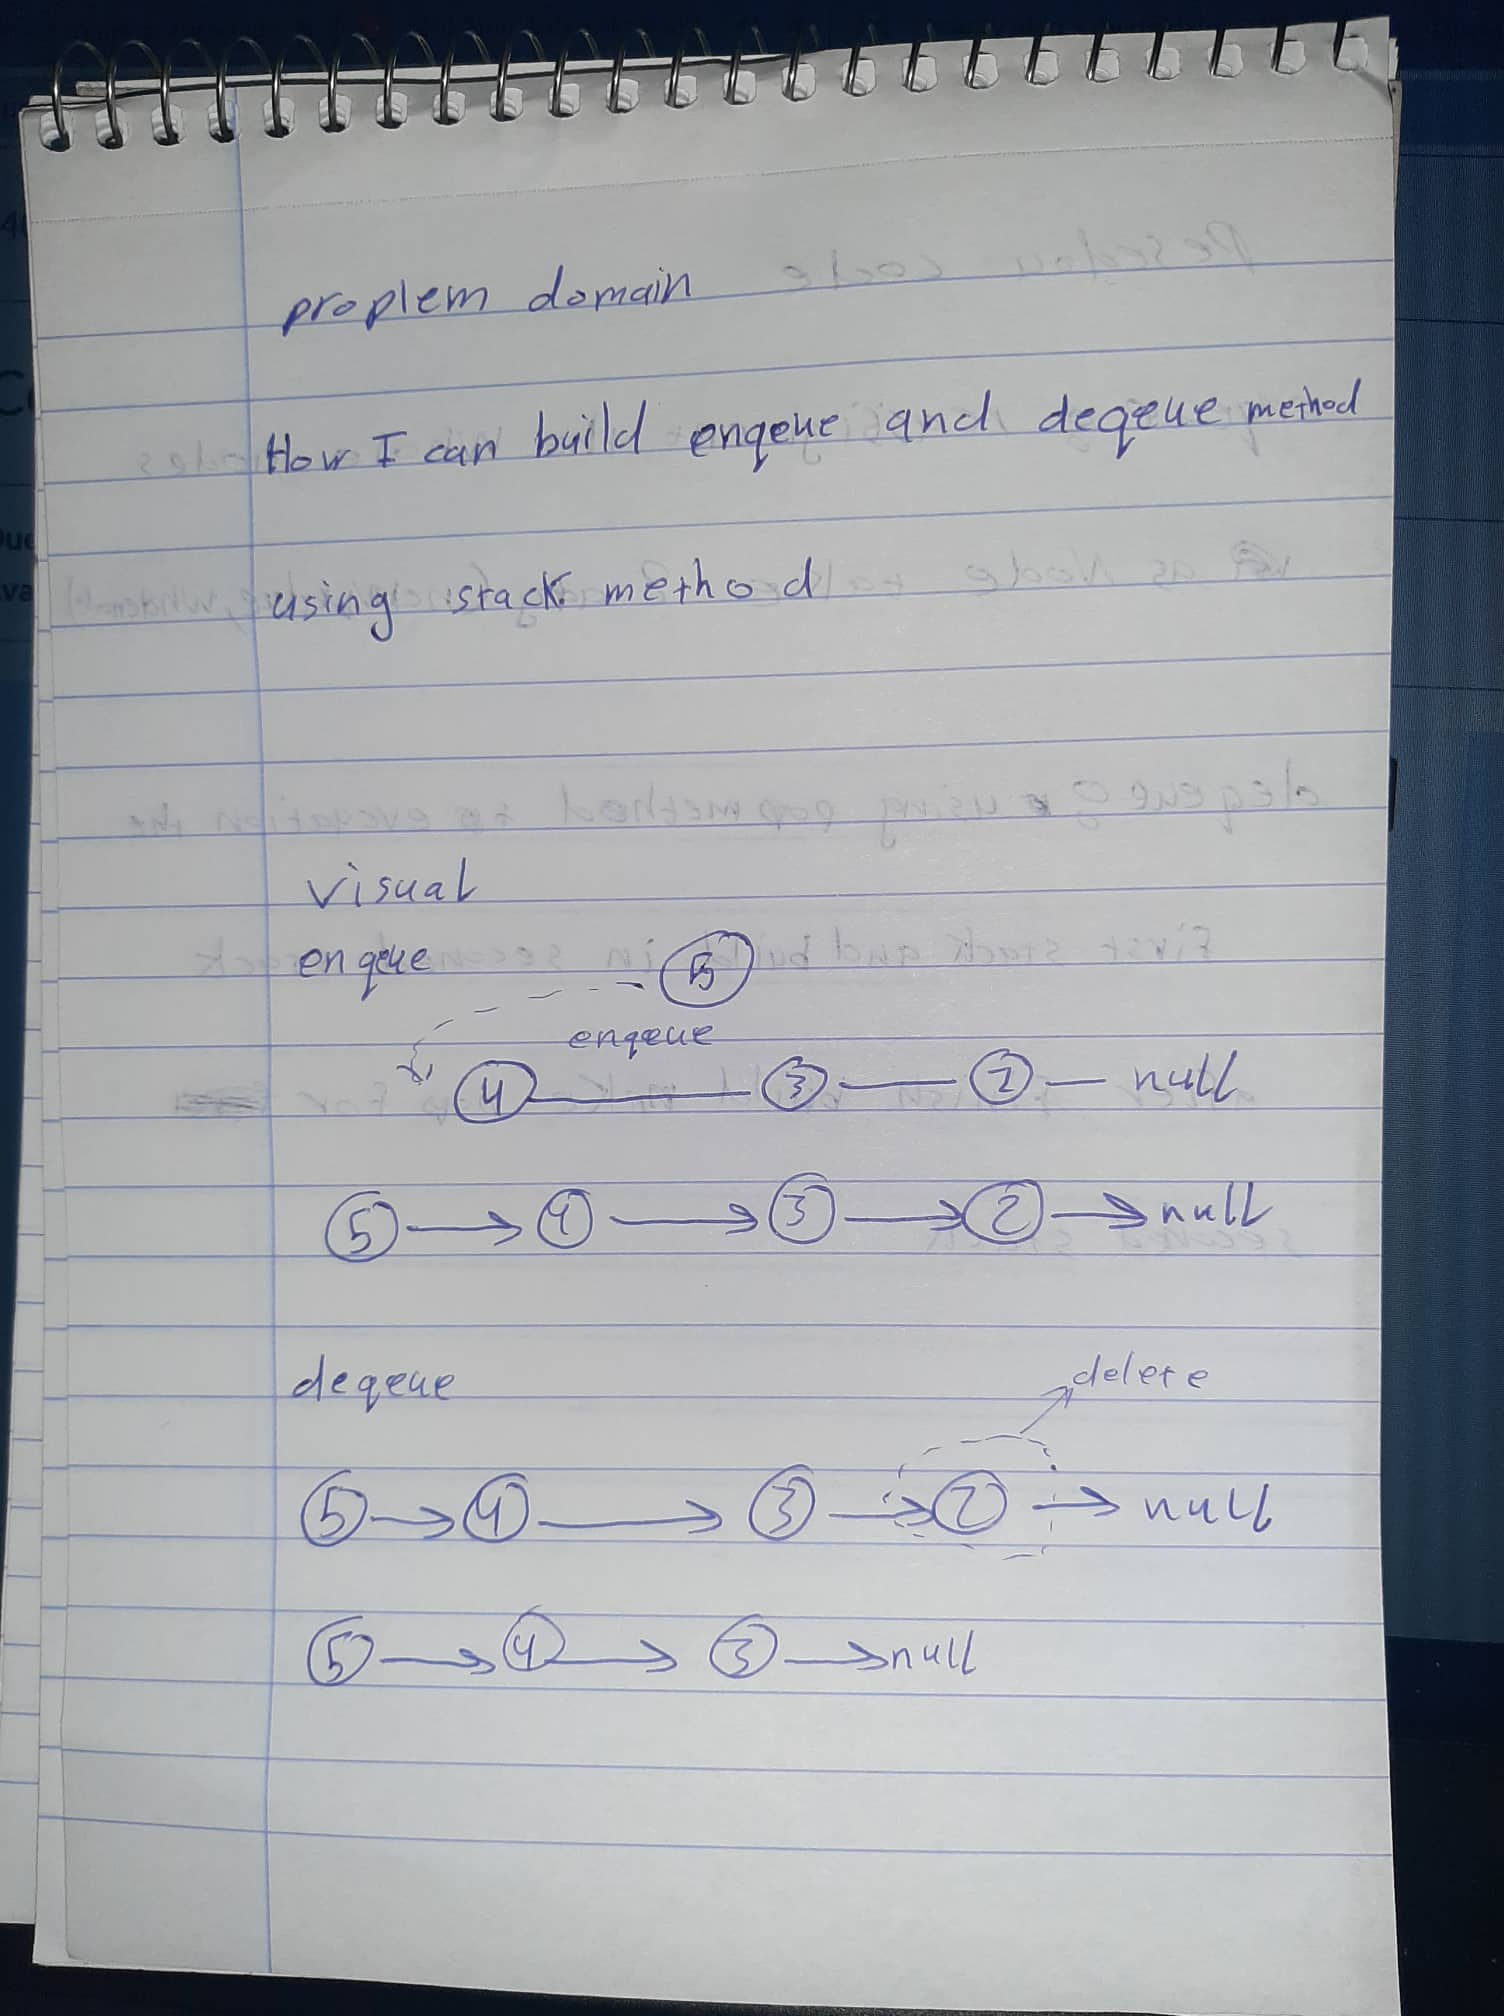 proplem domain
How I can build enqeue and deqeue method
using stack method
visual
enqeue
5
enqeue
4 3 2 null
5 4 3 2 null
deqeue
delete
5 4 3 2 null
5 4 3 null